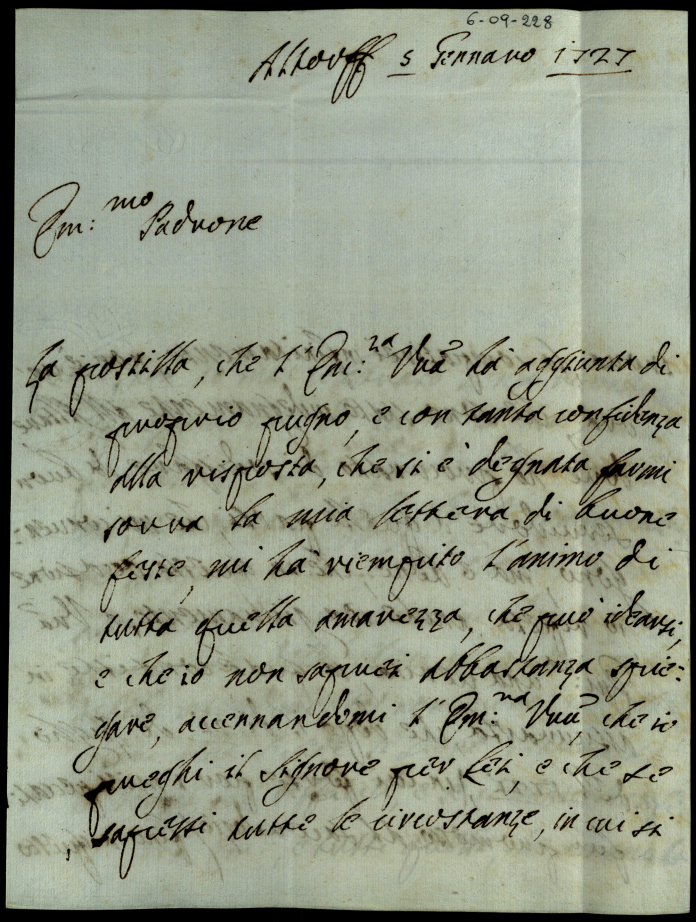 6-09-228
Altorff 5 Gennaro 1727
Em:mo Padrone
La postilla, che l'Em:za Vra hà aggiunta di
proprio pugno, e con tanta confidenza
alla risposta, che si è degnata farmi
sovra la mia lettera di buone
feste, mi hà riempito l'animo di
tutta quella amarezza, che può idearsi,
e che io non saprei abbastanza spie:
gare, accennandomi l'Em:na Vra, che io
preghi il Signore per Lei, e che se
sapessi tutte le circostanze, in cui si